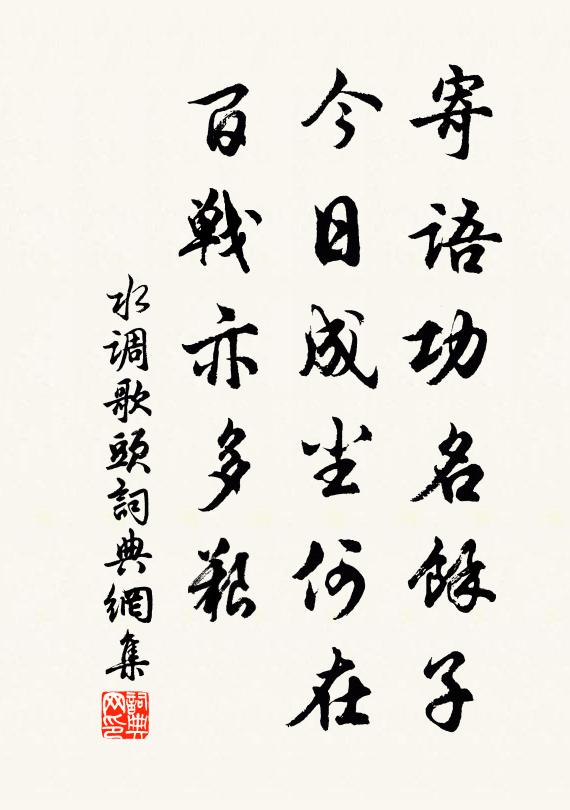 寄語功名餘子
今日成尘何在
百戦亦多艱
水调歌頭詞典網集
詞典网印